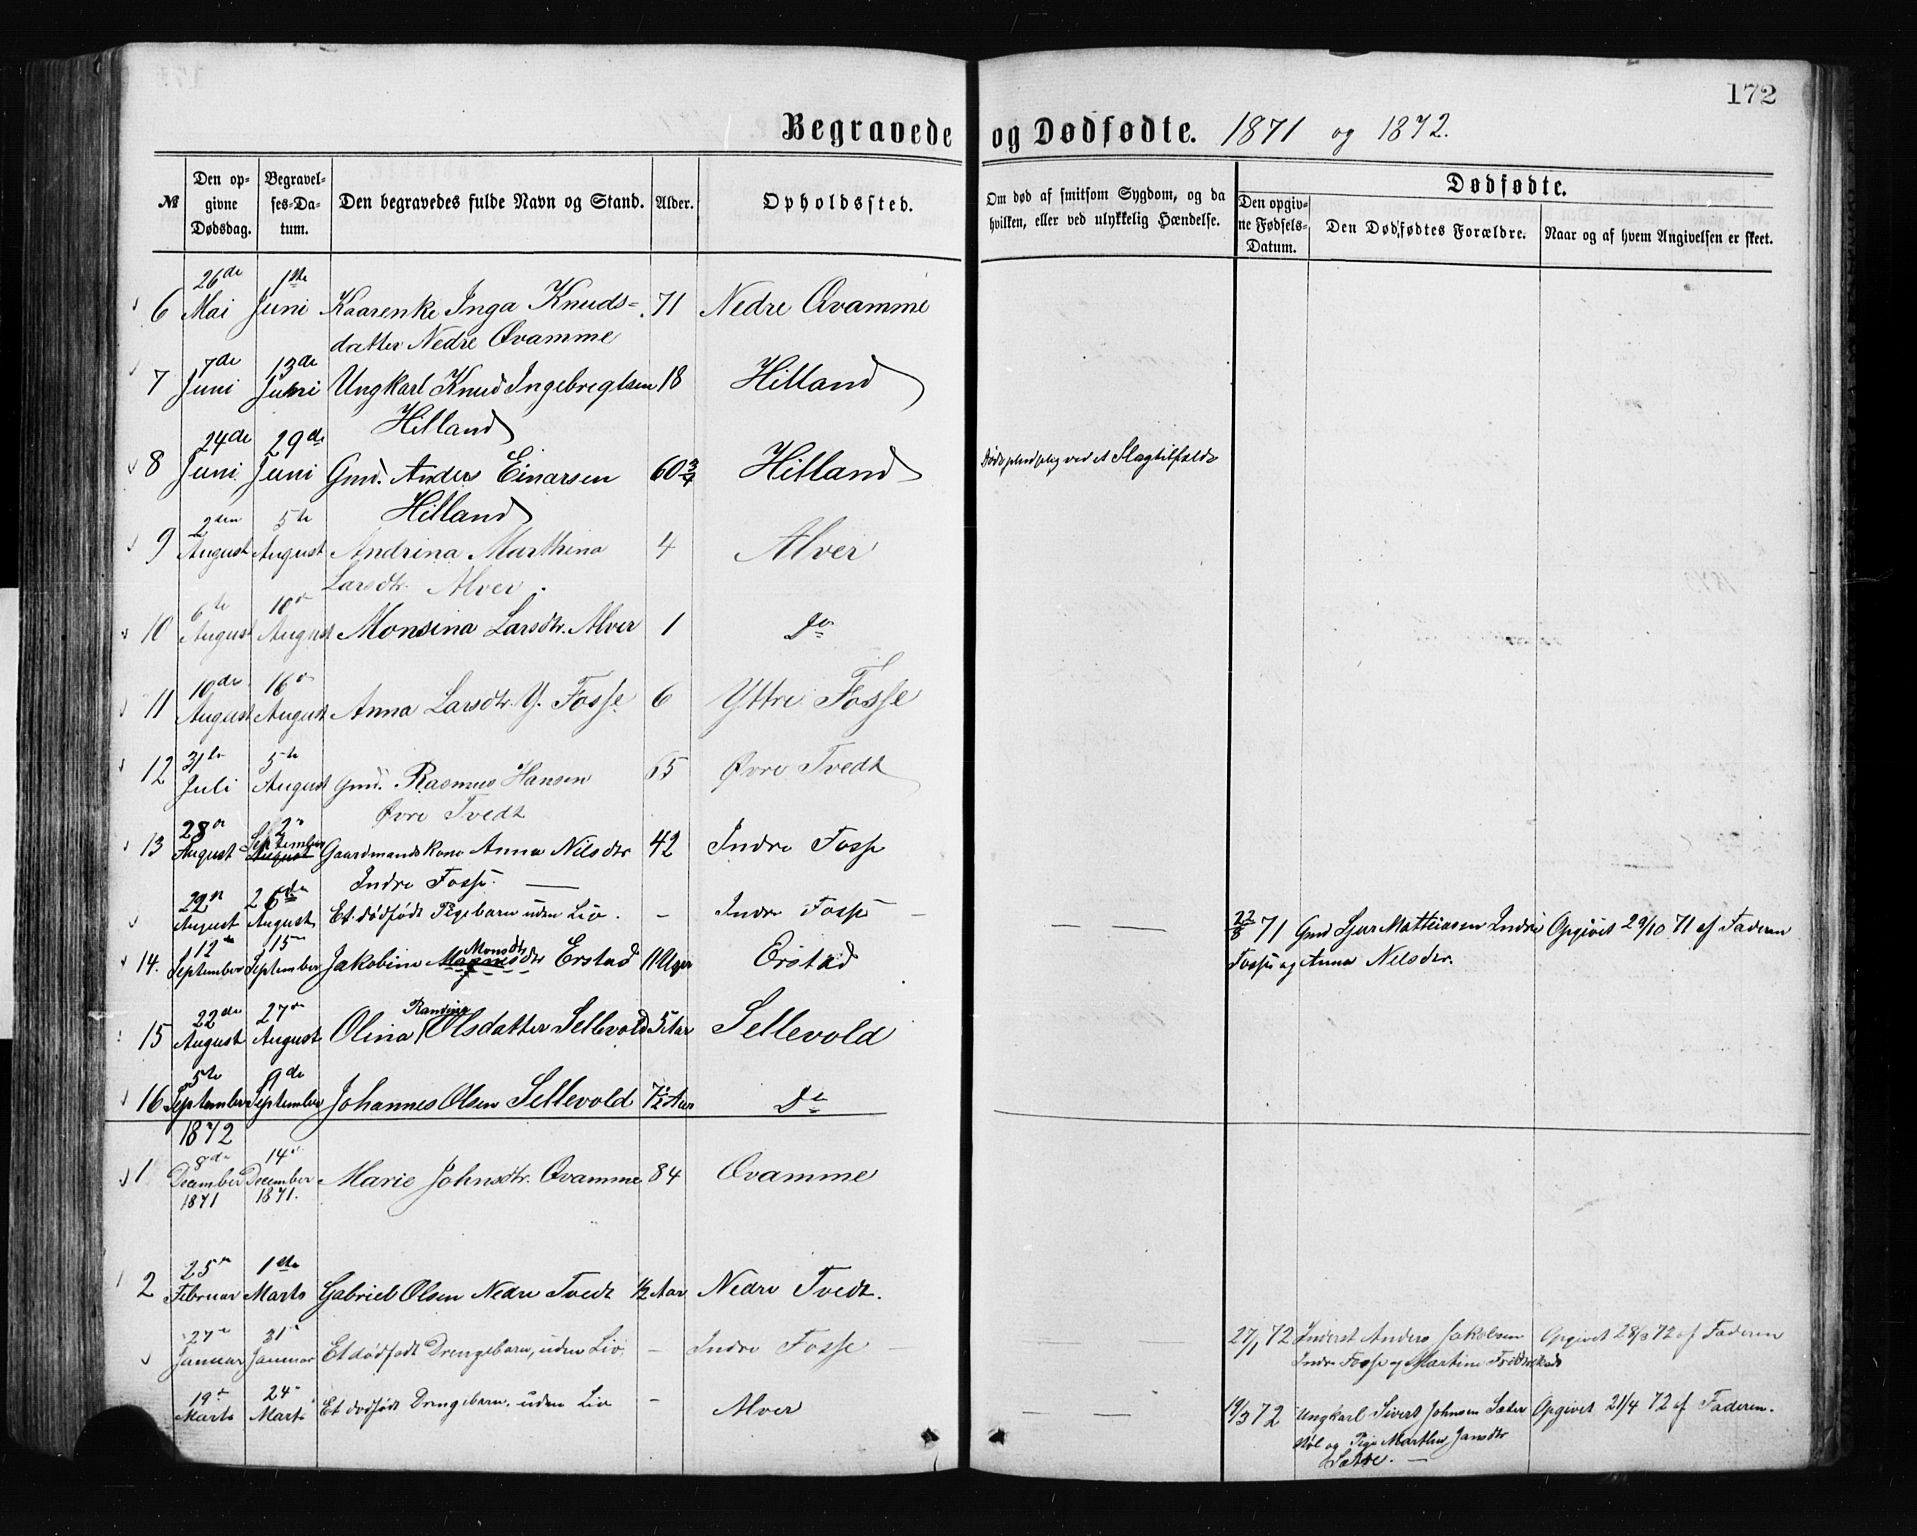 172
Begravede og Dødfødte. 1871 og 1872.
№ Den opgivne Dødsdag. Begravelses-Datum. Den begravedes fulde Navn og Stand. Alder. Opholdssted. Om død af smitsom Sygdom, og da hvilken, eller ved ulykkelig Hændelse. Dødfødte.
Den opgivne Fødsels-Datum. Den Dødfødtes Forældre. Naar og af hvem Angivelsen er skeet.
26de 1ste
6 Mai Juni Kaarenke Inga Knuds- 71 Nedre Qvamme
datter Nedre Qvamme
7de 13de
7 Juni Juni Ungkarl Knud Ingebregtsen 18 Hilland
Hilland
24de 29de
8 Juni Juni Gmd. Anders Einarsen 60 3/4 Hilland ved et Slagtilfælde
Hilland
2den 5te
9 August August Andrina Marthina 4 Alver
Larsdtr. Alver.
6te 10de
10 August August Monsina Larsdtr. Alver 1 Do
10de 16de
11 August August Anna Larsdtr. Y. Fosse 6 Yttre Fosse
31te 5te
12 Juli August Gmd. Rasmus Hansen 65 Øvre Tvedt
Øvre Tvedt
28de 2de September
13 August August Gaardmandskone Anna Nilsdtr 42 Indre Fosse
Indre Fosse. —
22de 26de
August August Et dødfødt Pigebarn uden Liv. - Indre Fosse — — — 22/8 71 Gmd Sjur Mathiasen Indre Opgivet 29/10 71 af Faderen
Fosse og Anna Nilsdtr.
12te 15de Monsdtr
14. September September Jakobine Magnusdtr Erstad 11 Uger Erstad
22de 27de Randine
15 August August Olina Olsdatter Sellevold 5 Aar Sellevold
5te 9de
16 September September Johannes Olsen Sellevold 7 1/2 Aar Do
1872
8de 14de
1 December December Marie Johnsdtr. Qvamme 84 Qvamme
1871 1871.
25de 1ste
2 Februar Marts Gabriel Olsen Nedre Tvedt 1/2 Aar Nedre Tvedt.
27de 31te
Januar Januar Et dødfødt Drengebarn, uden Liv. - Indre Fosse — — — 27/1 72 Inderst Anders Jakobsen Opgivet 28/3 72 af Faderen
Indre Fosse og Martine
19de 24de
Marts Marts Et dødfødt Drengebarn, uden Liv - Alver — — 19/3 72 Ungkarl Sivert Johnsen Sæter Opgivet 21/4 72 af Faderen.
støl og Pige Marthe Jansdtr
Sætre. —